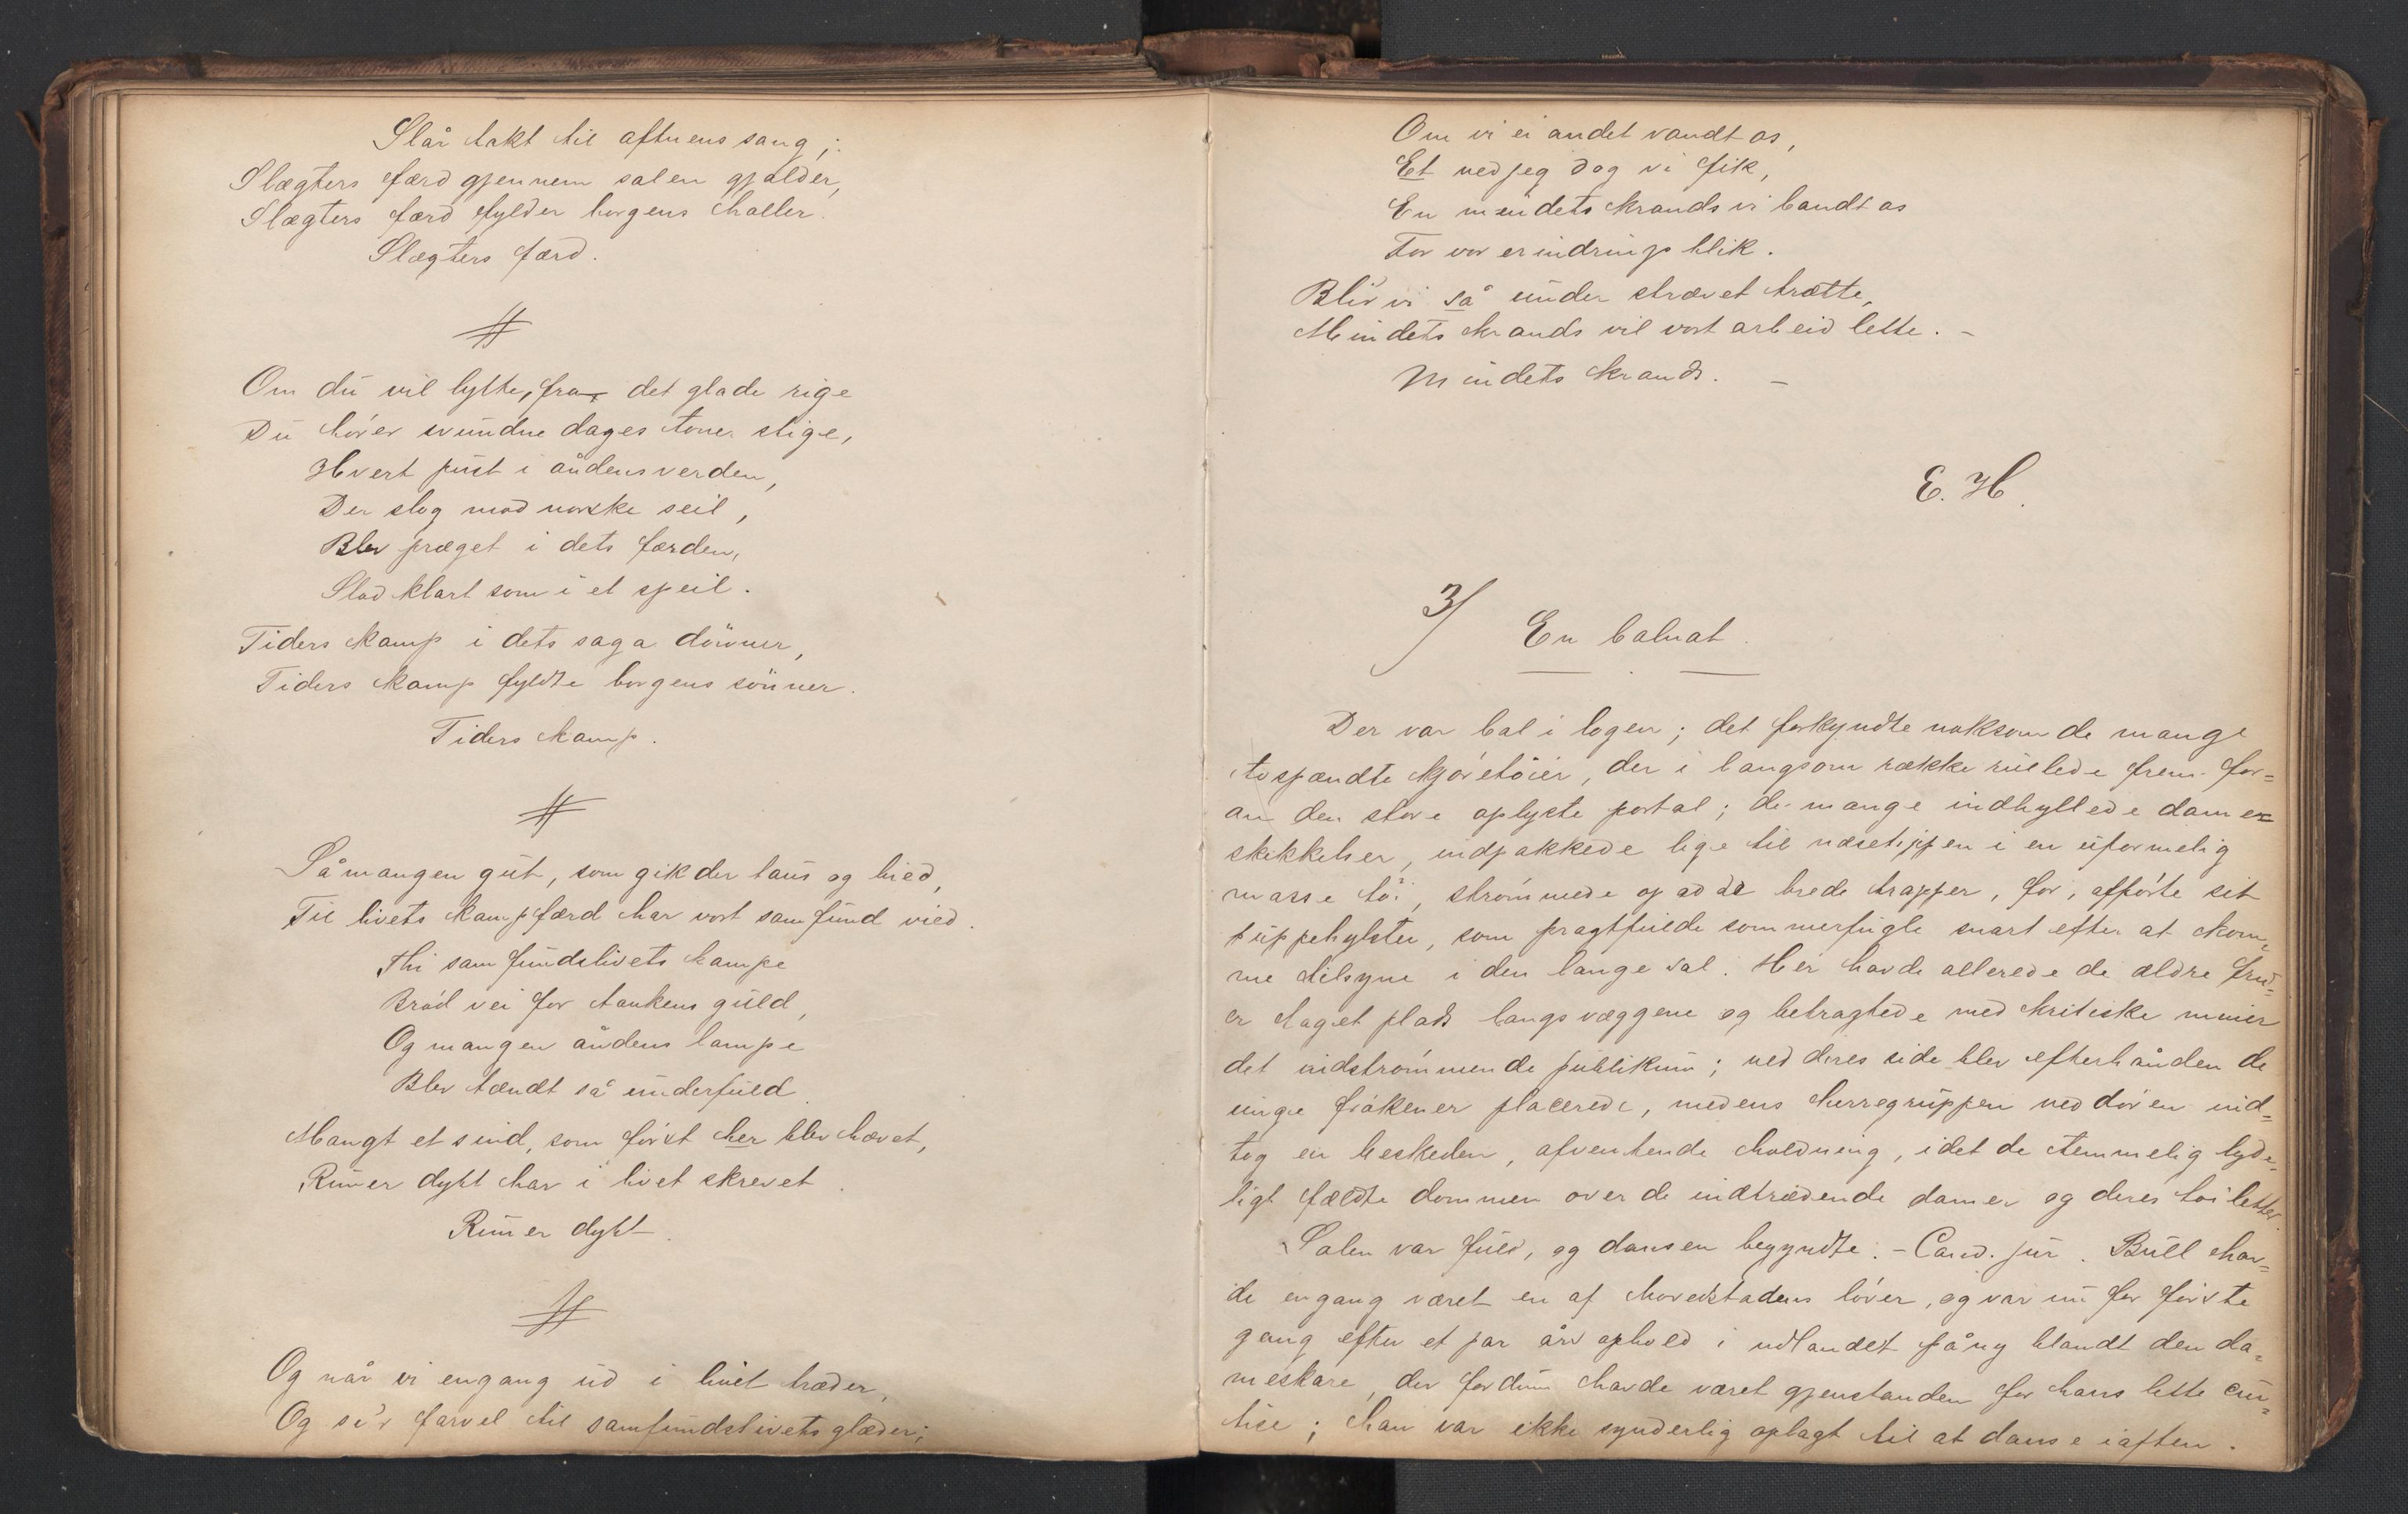 Slår takt til aftnens sang;
Slægters færd gjennem salen gjalder,
Slægters færd fylder borgens haller.
Slægters færd.
#
Om du vil lytte, fra det glade rige
Du hører svundne dages toner stige,
Hvert pust i åndens verden,
Der slog mod norske seil,
Blev præget i dets færden,
Stod klart som i et speil.
Tiders kamp i dets saga dönner,
Tiders kamp fyldte borgens sönner.
Tiders kamp.
#
Så mangen gut, som gik der taus og bied,
Til livets kampfærd har vort samfund vied.
Thi samfundslivets kampe
Bröd vei for tankens guld,
Og mangen åndens lampe
Blev tændt så underfuld.
Mangt et sind, som först her blev hævet,
Runer dybt har i livet skrevet.
Runer dybt.
#
Og når vi engang ud i livet træder,
Og si'r farvel til samfundslivets glæder;
Om vi ei andet vandt os,
Et ved jeg dog vi fik,
En mindets krands vi bandt os
For vor erindrings blik.
Bliv vi så under strævet trætte,
Mindets krands vil vort arbeid lette. -
Mindets krands. -
E. H.
3/ En balnat.
Der var bal i logen; det forkyndte noksom de mange
tospændte kjöretöier, der i langsom række rullede frem for=
an den store oplyste portal; de mange indhyllede dame=
skikkelser, indpakkede lige til næsetippen i en uformelig
masse töi, strömmede op ad de brede trapper, for, afförte sit
puppehylster, som pragtfulde sommerfugle snart efter at kom=
me tilsyne i den lange sal. Her havde allerede de ældre fru=
er taget plads langs væggene og betragtede med kritiske miner
det indströmmende publikum; ved deres side blev efterhånden de
unge frökener placerede, medens herregruppen ved dören ind=
tog en beskeden, afventende holdning, idet de temmelig tyde=
ligt fældte dommen over de indtrædende damer og deres toiletter.
Salen var fuld, og dansen begyndte. - Cand. jur. Bull hav=
de engang været en af hovedstadens löver, og var nu for förste
gang efter et par års ophold i udlandet påny blandt den da=
meskare, der fordum havde været gjenstanden for hans lette cur=
tise; han var ikke synderlig oplagt til at danse iaften.